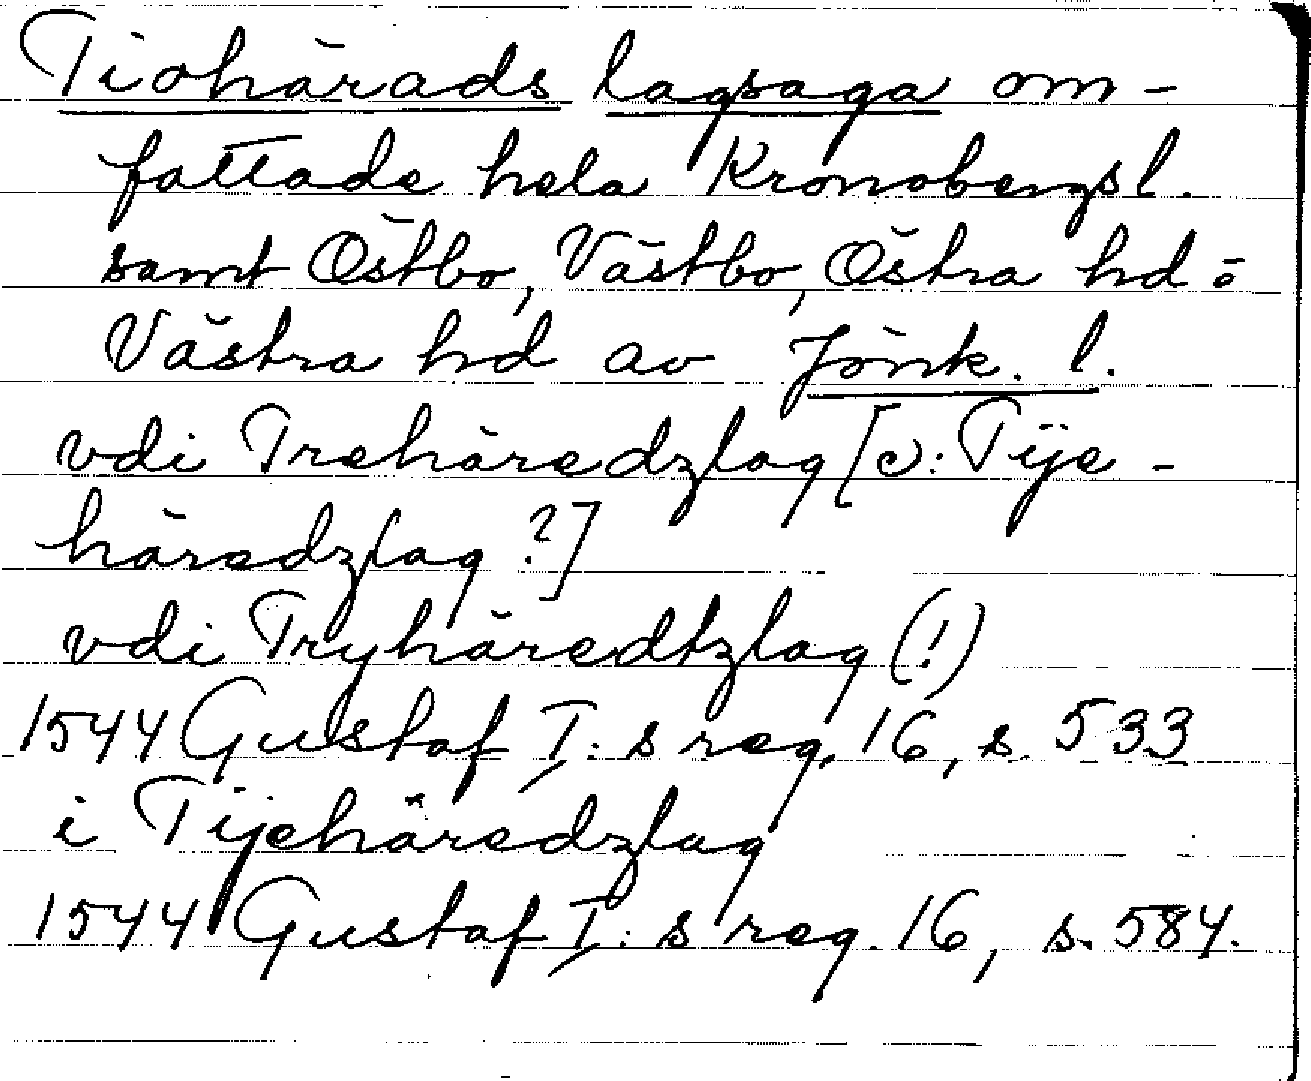 Tiohärads lagsaga om-
fattade hela Kronobergsl.
samt Östbo, Västbo, Östra hd o
Västra hd av Jönk. l.
vdi Trehäredzlag [ɔ: Tije-
häredzlag ?]
vdi Tryhäredtzlag (!)
1544 Gustaf I: s reg. 16, s. 533
i Tijehäredzlag
1544 Gustaf I: s reg. 16, s. 584.